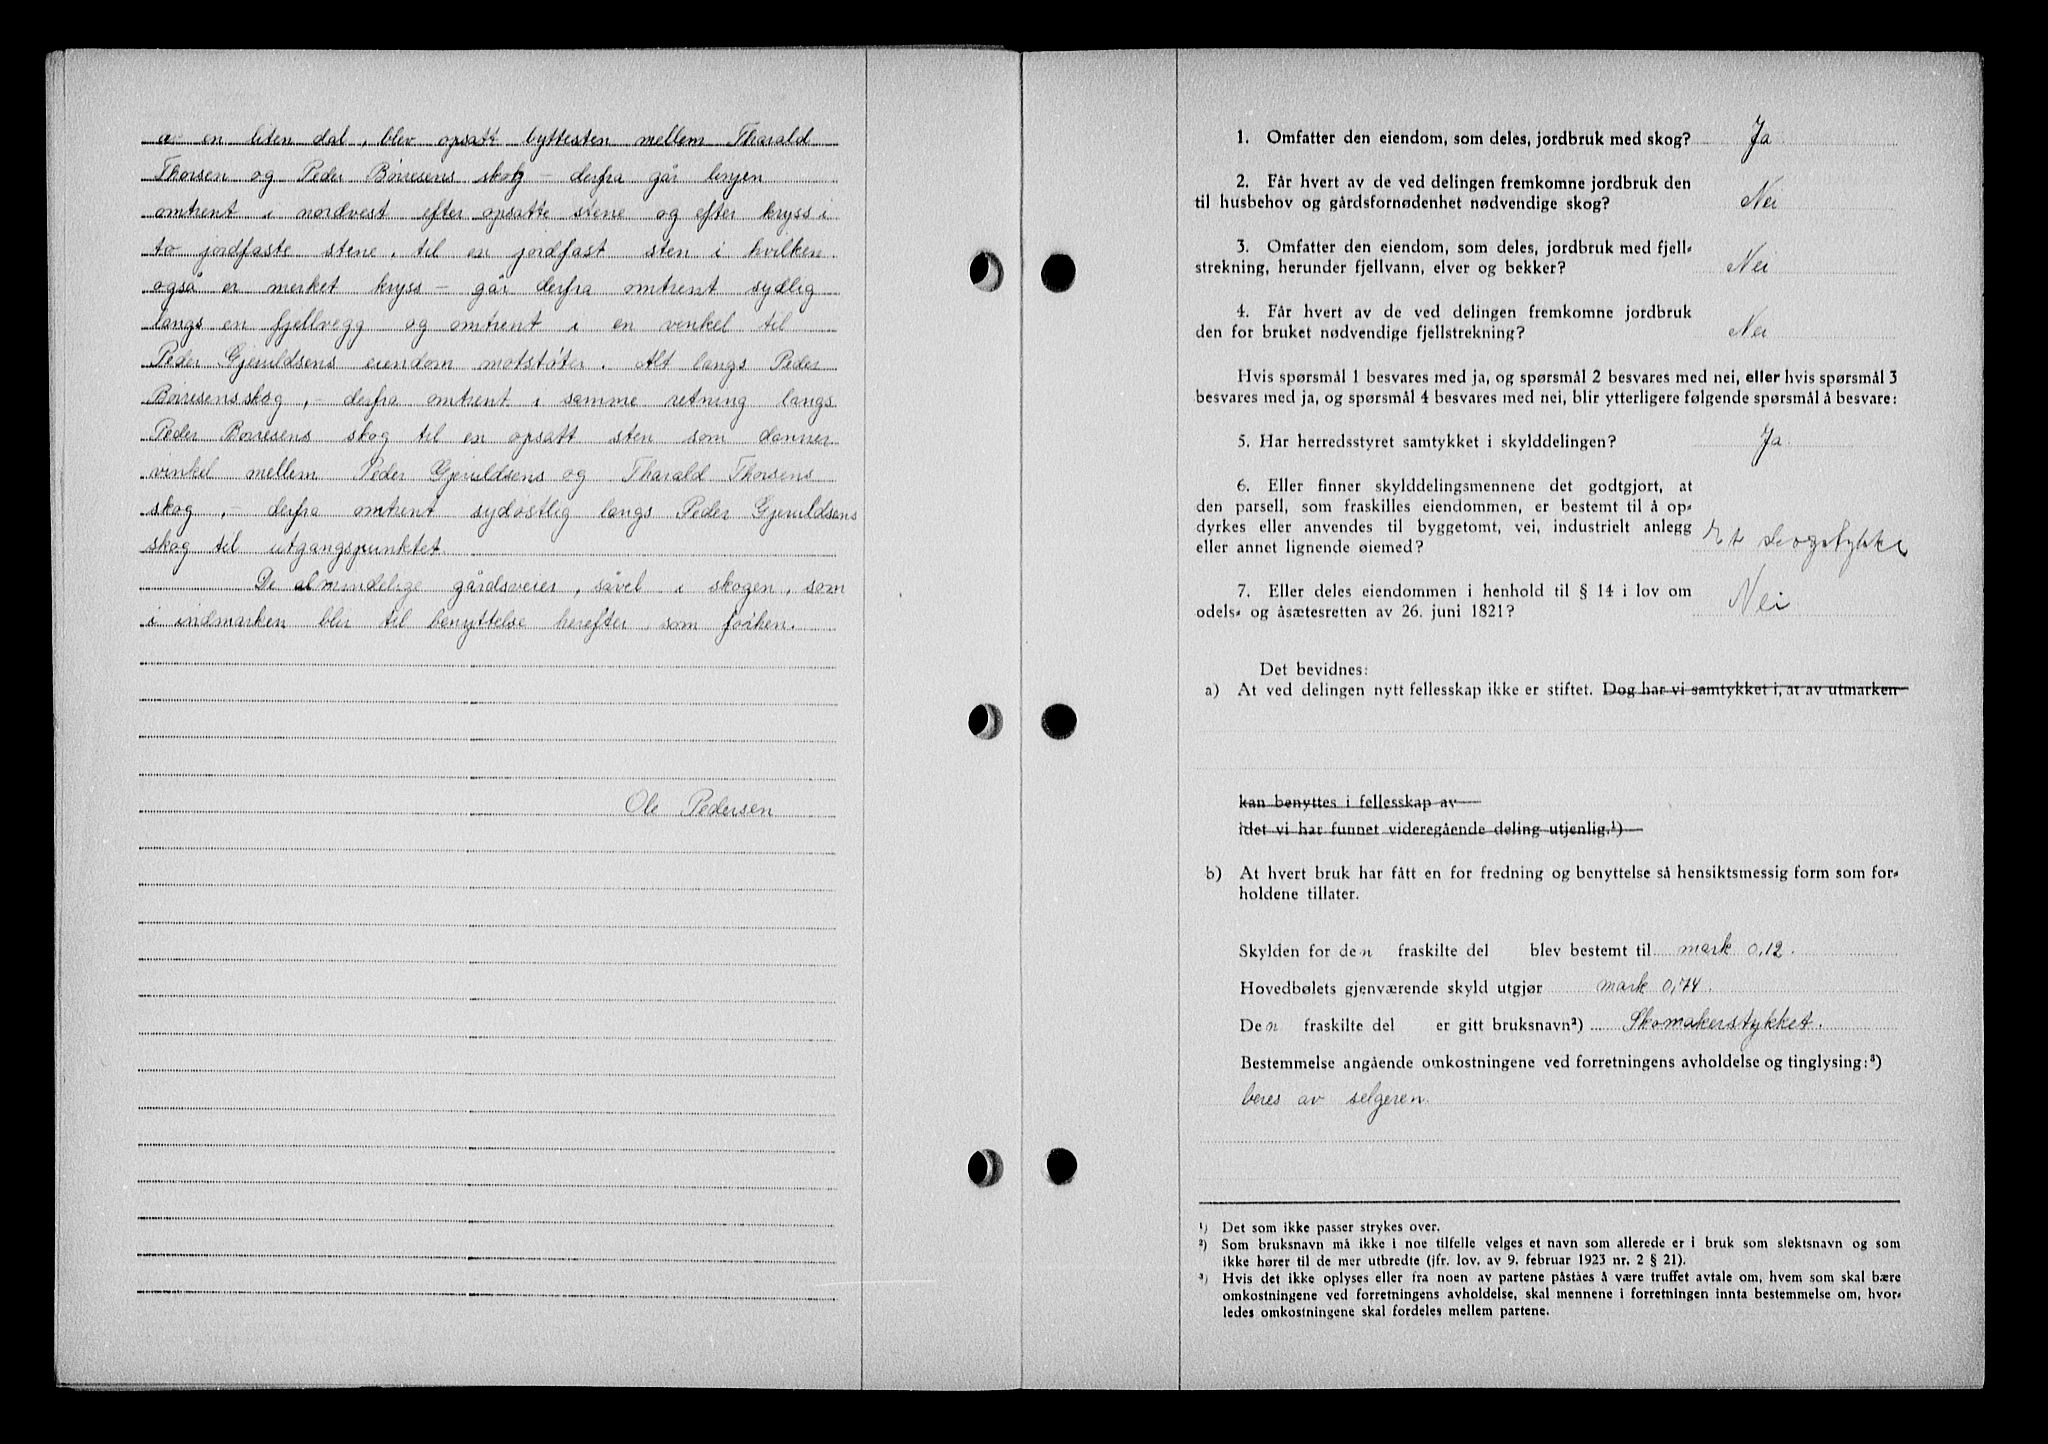 av en liten dal, blev opsatt byttesten mellem Tharald
Thorsen og Peder Børresens skog – derfra går linjen
omtrent i nordvest efter opsatte stene og efter kryss i
to jordfaste stene, til en jordfast sten i hvilken
også er merket kryss – går derfra omtrent sydlig
langs en fjellvegg og omtrent i en vinkel til
Peder Gjeruldsens eiendom motstøter. Alt langs Peder
Børresens skog, – derfra omtrent i samme retning langs
Peder Børresens skog til en opsatt sten som danner
vinkel mellem Peder Gjeruldsens og Tharald Thorsens
skog, – derfra omtrent sydøstlig langs Peder Gjeruldsens
skog til utgangspunktet.
De almindelige gårdsveier, såvel i skogen, som
i indmarken blir til benyttelse herefter, som förken.
Ole Pedersen
1. Omfatter den eiendom, som deles, jordbruk med skog? Ja
2. Får hvert av de ved delingen fremkomne jordbruk den
til husbehov og gårdsfornødenhet nødvendige skog? Nei
3. Omfatter den eiendom, som deles, jordbruk med fjell-
strekning, herunder fjellvann, elver og bekker? Nei
4. Får hvert av de ved delingen fremkomne jordbruk
den for bruket nødvendige fjellstrekning? Nei
Hvis spørsmål 1 besvares med ja, og spørsmål 2 besvares med nei, eller hvis spørsmål 3
besvares med ja, og spørsmål 4 besvares med nei, blir ytterligere følgende spørsmål å besvare:
5. Har herredsstyret samtykket i skylddelingen? Ja
6. Eller finner skylddelingsmennene det godtgjort, at
den parsell, som fraskilles eiendommen, er bestemt til å op-
dyrkes eller anvendes til byggetomt, vei, industrielt anlegg
eller annet lignende øiemed? Et skogstykke
7. Eller deles eiendommen i henhold til § 14 i lov om
odels- og åsætesretten av 26. juni 1821? Nei
Det bevidnes:
a) At ved delingen nytt fellesskap ikke er stiftet. Dog har vi samtykket i, at av utmarken
kan benyttes i fellesskap av
idet vi har funnet videregående deling utjenlig.¹)
b) At hvert bruk har fått en for fredning og benyttelse så hensiktsmessig form som for-
holdene tillater.
Skylden for den fraskilte del blev bestemt til mark 0,12.
Hovedbølets gjenværende skyld utgjør mark 0,74.
Den fraskilte del er gitt bruksnavn²) Skomakerstykket.
Bestemmelse angående omkostningene ved forretningens avholdelse og tinglysing:³)
beres av selgeren.
¹) Det som ikke passer strykes over.
²) Som bruksnavn må ikke i noe tilfelle velges et navn som allerede er i bruk som slektsnavn og som
ikke hører til de mer utbredte (jfr. lov. av 9. februar 1923 nr. 2 § 21).
³) Hvis det ikke oplyses eller fra noen av partene påståes å være truffet avtale om, hvem som skal bære
omkostningene ved forretningens avholdelse, skal mennene i forretningen innta bestemmelse om, hvor-
ledes omkostningene skal fordeles mellem partene.